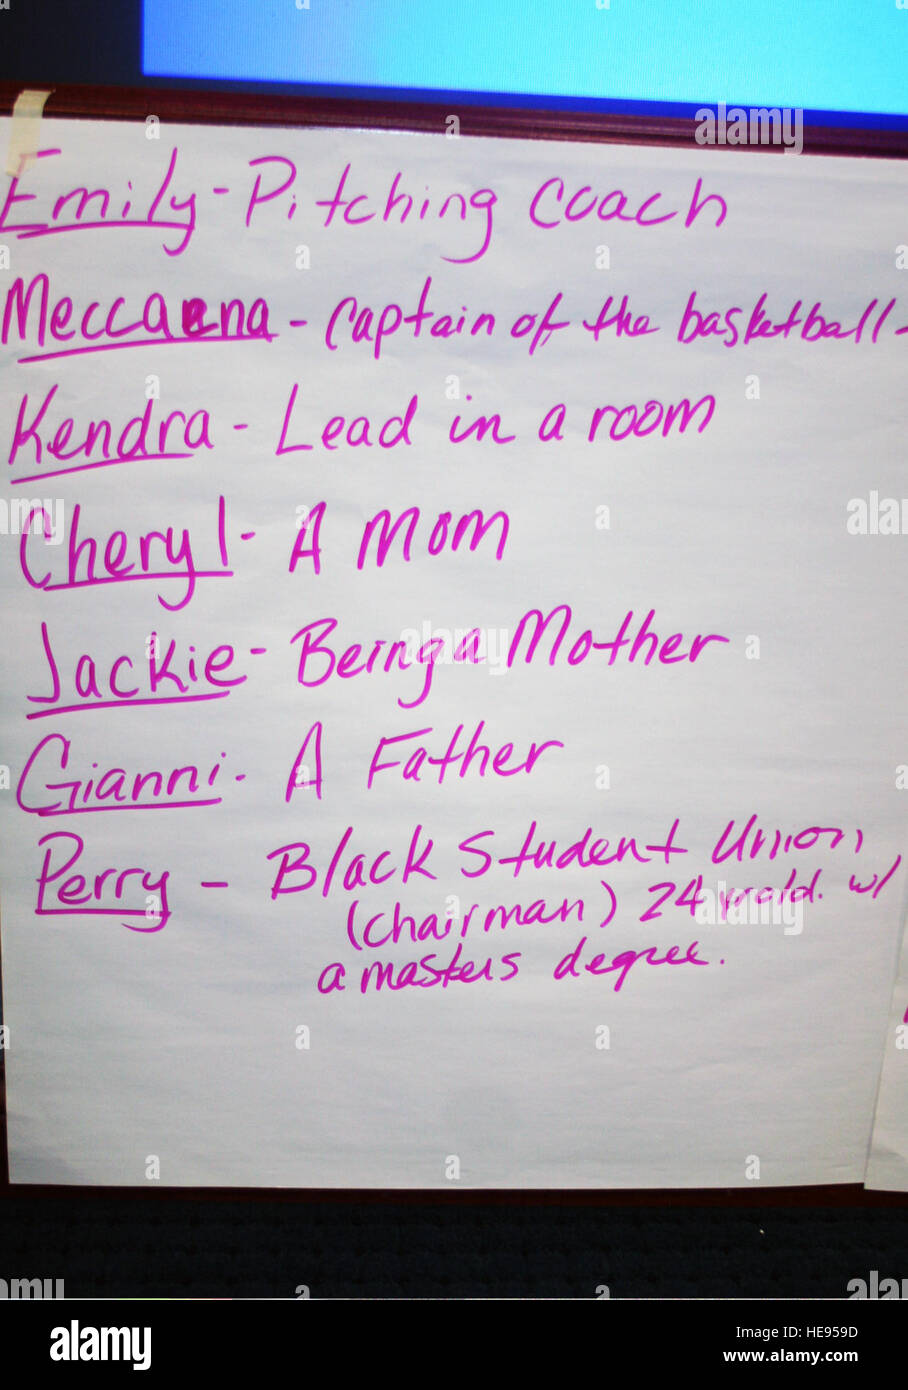 Emily - Pitching Coach
Meccaena - Captain of the basketball -
Kendra - Lead in a room
Cheryl - A Mom
Jackie - Being a Mother
Gianni - A Father
Perry - Black Student Union
(chairman) 24 yr old. w/
a masters degree.
alamy
Image ID: HE959D
www.alamy.com